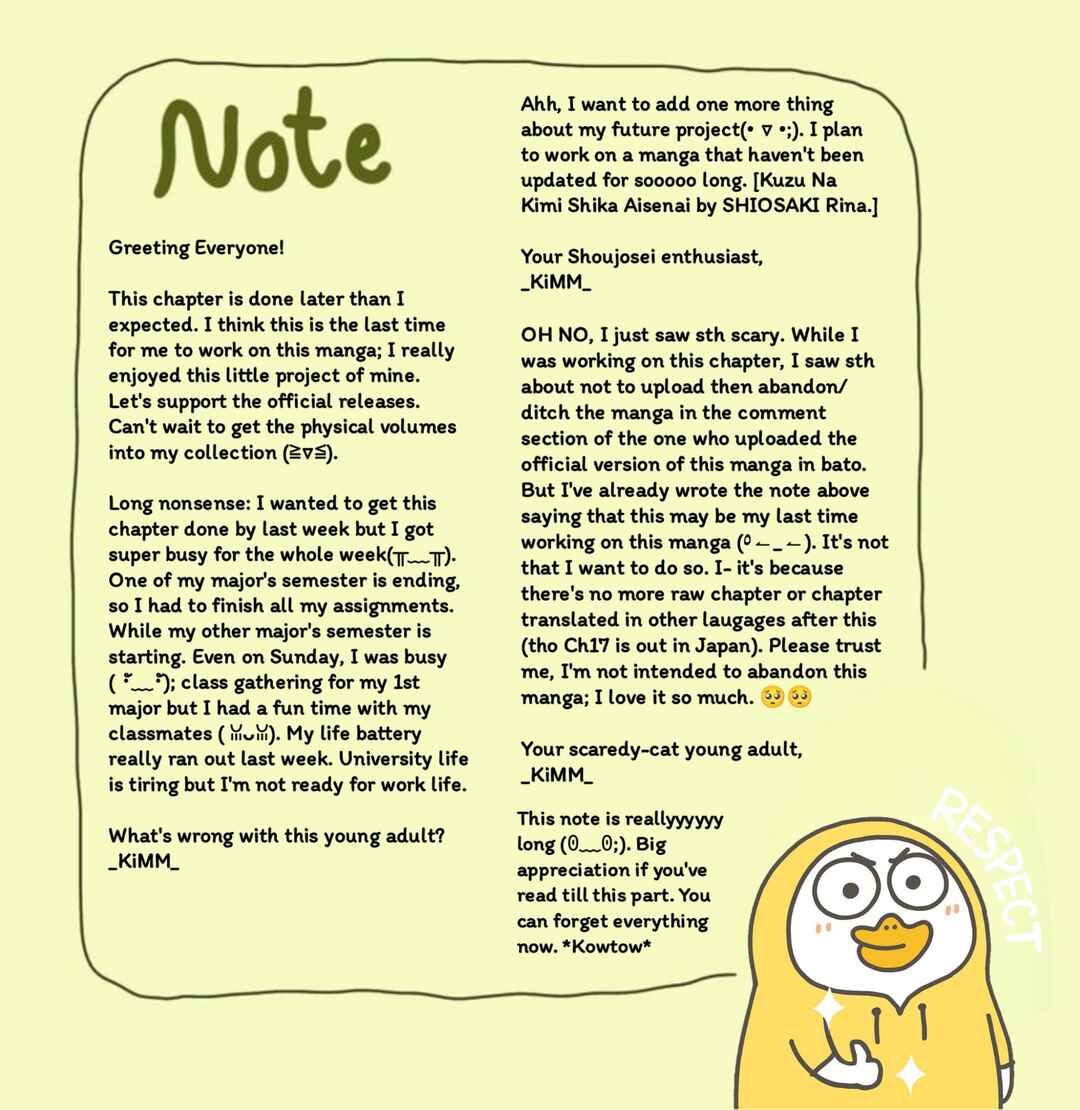 Note
Greeting Everyone!
This chapter is done later than I
expected. I think this is the last time
for me to work on this manga; I really
enjoyed this little project of mine.
Let's support the official releases.
Can't wait to get the physical volumes
into my collection (≧▽≦).
Long nonsense: I wanted to get this
chapter done by last week but I got
super busy for the whole week(╥﹏╥).
One of my major's semester is ending,
so I had to finish all my assignments.
While my other major's semester is
starting. Even on Sunday, I was busy
( ･ั﹏･ั); class gathering for my 1st
major but I had a fun time with my
classmates ( ꈍᴗꈍ). My life battery
really ran out last week. University life
is tiring but I'm not ready for work life.
What's wrong with this young adult?
_KiMM_
Ahh, I want to add one more thing
about my future project(• ▽ •;). I plan
to work on a manga that haven't been
updated for sooooo long. [Kuzu Na
Kimi Shika Aisenai by SHIOSAKI Rina.]
Your Shoujosei enthusiast,
_KiMM_
OH NO, I just saw sth scary. While I
was working on this chapter, I saw sth
about not to upload then abandon/
ditch the manga in the comment
section of the one who uploaded the
official version of this manga in bato.
But I've already wrote the note above
saying that this may be my last time
working on this manga (⁠ᠥ⁠↼⁠_⁠↼). It's not
that I want to do so. I- it's because
there's no more raw chapter or chapter
translated in other laugages after this
(tho Ch17 is out in Japan). Please trust
me, I'm not intended to abandon this
manga; I love it so much. 🥺🥺
Your scaredy-cat young adult,
_KiMM_
This note is reallyyyyyy
long (⁠ʘ⁠﹏⁠ʘ;). Big
appreciation if you've
read till this part. You
can forget everything
now. *Kowtow*
RESPECT